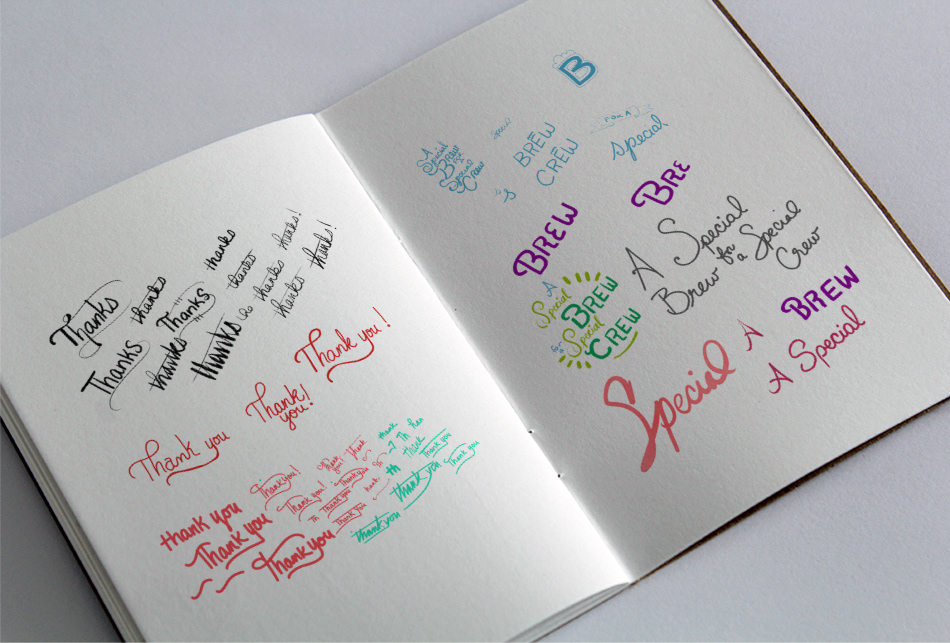 Thanks
thanks
thanks
Thanks
thanks
thanks!
Thanks
thanks
thanks
thanks
thanks
thanks!
Thank you!
Thank
you!
Thank you
Thank you!
thank you
Thank you
Thank you
thank
Th
think
th
thank you
Thank you
thank you
Thank you
B
A
Special
Brew
for a
Special
Crew
Special
BREW
CREW
's
FOR A
special
BREW
BRE
A
Special
BREW
for a
Special
CREW
A Special
Brew for
a Special
Crew
A BREW
A Special
Special